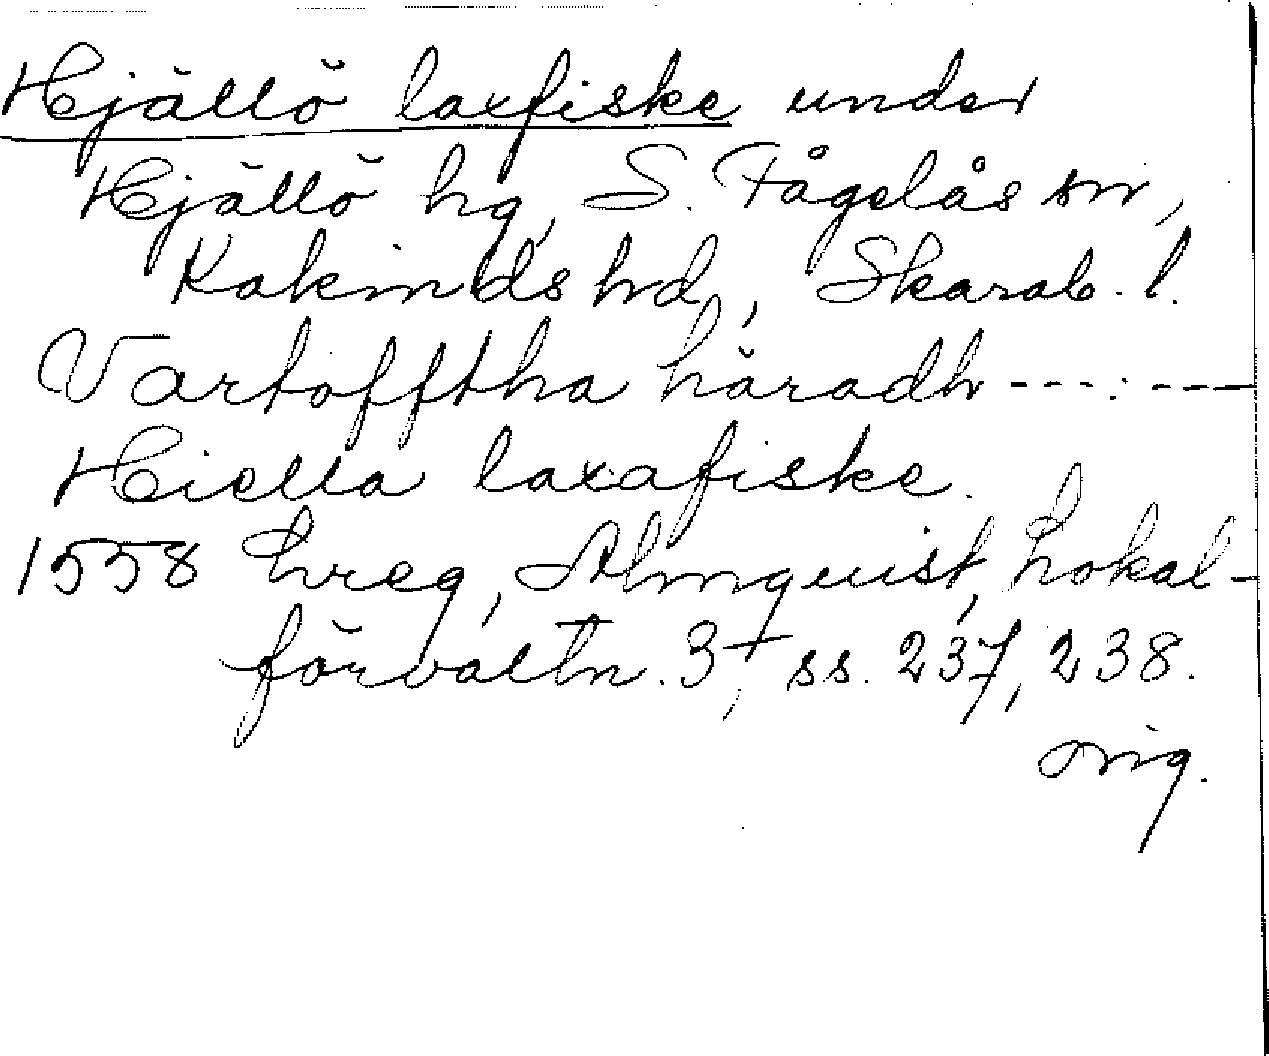 Hjällö laxfiske under
Hjällö hg, S. Fågelås sn,
Kakinds hd, Skarab. l.
Vartofftha häradh ---:---
Hiella laxafiske.
1558 Lreg, Almquist, Lokal-
förvaltn. 3, ss. 237, 238.
orig.